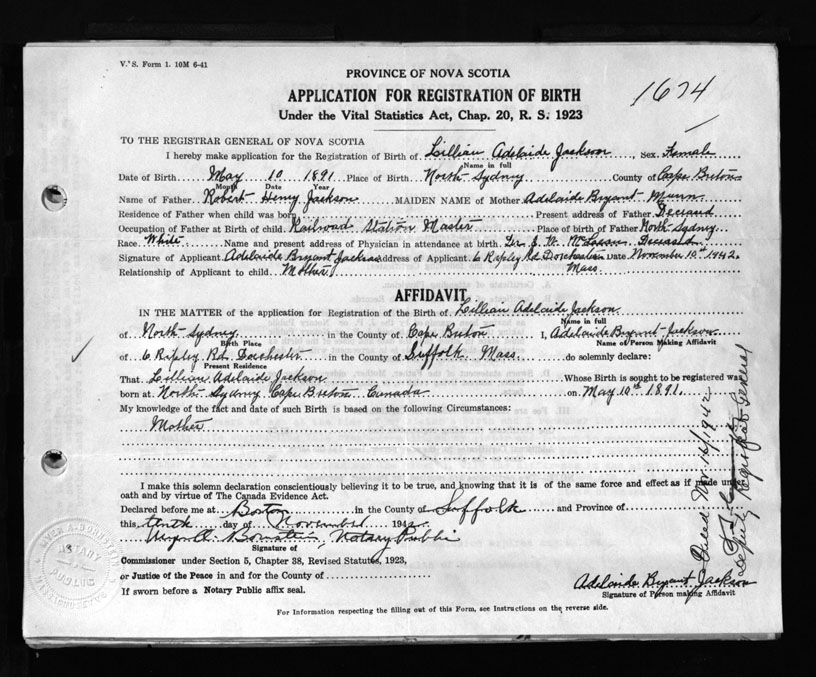 V. S. Form 1. 10M 6-41
1674
PROVINCE OF NOVA SCOTIA
APPLICATION FOR REGISTRATION OF BIRTH
Under the Vital Statistics Act, Chap. 20, R. S. 1923
TO THE REGISTRAR GENERAL OF NOVA SCOTIA
I hereby make application for the Registration of Birth of Lillian Adelaide Jackson, Sex Female
Name in full
Date of Birth May 10 1891 Place of Birth North Sydney County of Cape Breton
Month Date Year
Name of Father Robert Henry Jackson MAIDEN NAME of Mother Adelaide Bryant Munn
Residence of Father when child was born Present address of Father Deceased
Occupation of Father at Birth of child Railroad Station Master Place of birth of Father North Sydney
Race White Name and present address of Physician in attendance at birth. Dr. J. W. Deceased
Signature of Applicant Adelaide Bryant Jackson Address of Applicant 6 Ripley Rd Dorchester Date November 10th 1942.
Mass.
Relationship of Applicant to child Mother
AFFIDAVIT
IN THE MATTER of the application for Registration of the Birth of Lillian Adelaide Jackson
Name in full
of North Sydney in the County of Cape Breton I, Adelaide Bryant Jackson
Birth Place Name of Person Making Affidavit
of 6 Ripley Rd. Dorchester in the County of Suffolk Mass. do solemnly declare:
Present Residence
That Lillian Adelaide Jackson Whose Birth is sought to be registered was
born at North Sydney Cape Breton Canada on May 10th 1891.
My knowledge of the fact and date of such Birth is based on the following Circumstances:
Mother
I make this solemn declaration conscientiously believing it to be true, and knowing that it is of the same force and effect as if made under
oath and by virtue of The Canada Evidence Act.
Declared before me at Boston in the County of Suffolk and Province of
this tenth day of November 1942
Notary Public
Signature of
Commissioner under Section 5, Chapter 38, Revised Statutes, 1923,
or Justice of the Peace in and for the County of
If sworn before a Notary Public affix seal.
Adelaide Bryant Jackson
Signature of Person making Affidavit
For Information respecting the filling out of this Form, see Instructions on the reverse side.
Filed Nov 16/1942
Deputy Registrar General
NOTARY
PUBLIC
MASSACHUSETTS